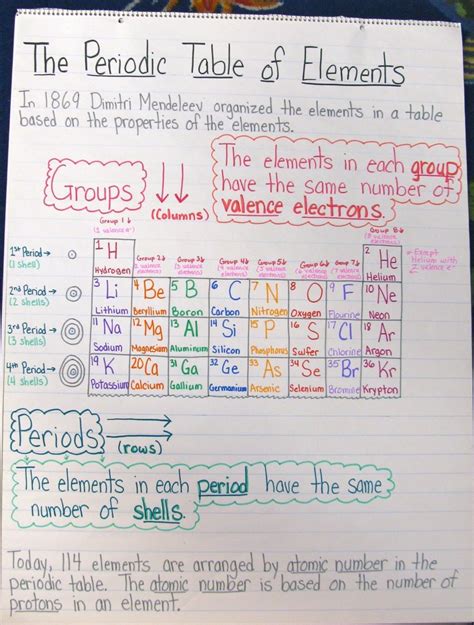 The Periodic Table of Elements
In 1869 Dimitri Mendeleev organized the elements in a table
based on the properties of the elements.
Groups
(columns)
The elements in each group
have the same number of
valence electrons.
Group 1↓
Group 8↓
1st Period →
(1 shell)
1 H
Hydrogen
Group 2↓ Group 3↓ Group 4↓ Group 5↓ Group 6↓ Group 7↓
2 He
Helium
← Except Helium with 2 valence e⁻
2nd Period →
(2 shells)
3 Li 4 Be 5 B 6 C 7 N 8 O 9 F 10 Ne
Lithium Beryllium Boron Carbon Nitrogen Oxygen Flourine Neon
3rd Period →
(3 shells)
11 Na 12 Mg 13 Al 14 Si 15 P 16 S 17 Cl 18 Ar
Sodium Magnesium Aluminum Silicon Phosphorus Sulfer Chlorine Argon
4th Period →
(4 shells)
19 K 20 Ca 31 Ga 32 Ge 33 As 34 Se 35 Br 36 Kr
Potassium Calcium Gallium Germanium Arsenic Selenium Bromine Krypton
Periods
(rows)
The elements in each period have the same
number of shells.
Today, 114 elements are arranged by atomic number in the
periodic table. The atomic number is based on the number of
protons in an element.